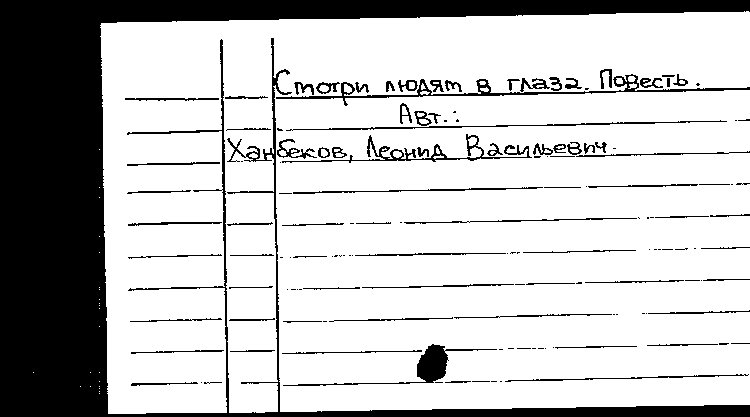 Смотри людям в глаза. Повесть.
Авт.:
Ханбеков, Леонид Васильевич.